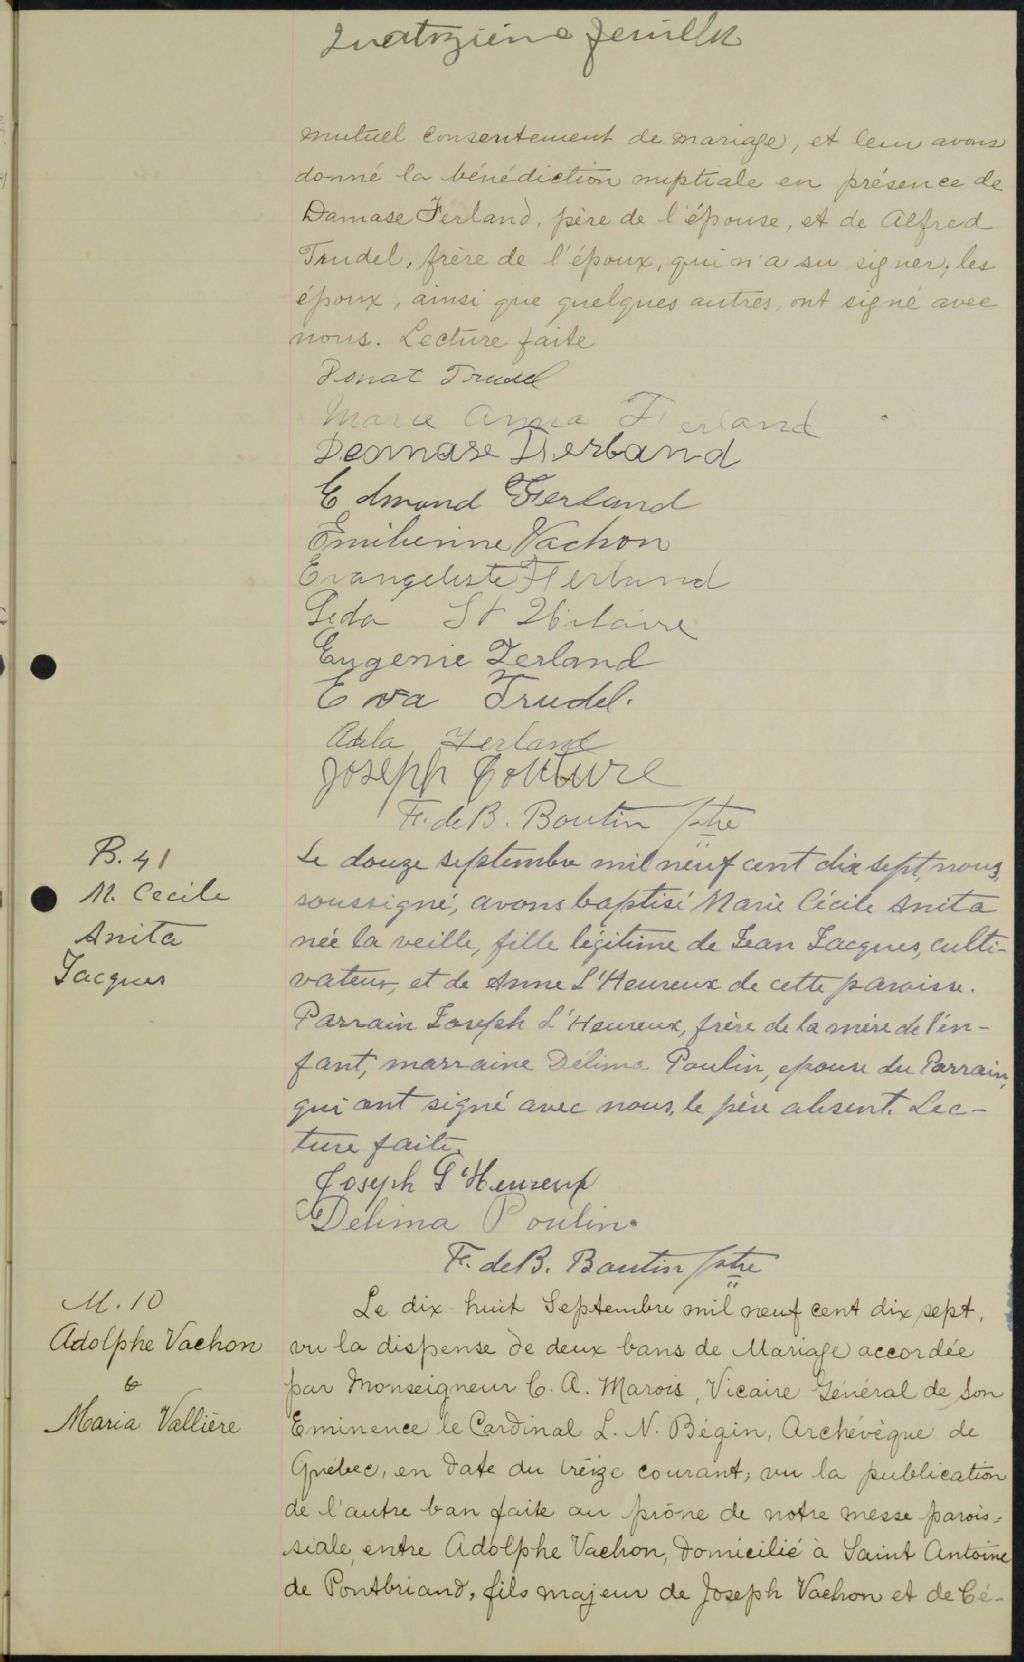 Quatorzième feuillet
mutuel consentement de mariage, et leur avons
donné la bénédiction nuptiale en présence de
Damase Ferland, père de l'épouse, et de Alfred
Trudel, frère de l'époux, qui n'a su signer; les
époux, ainsi que quelques autres, ont signé avec
nous. Lecture faite
Donat Trudel
Marie Anna Ferland
Damase Ferland
Edmond Ferland
Emilienne Vachon
Evangeliste Ferland
Leda St Hilaire
Eugenie Ferland
Eva Trudel.
Adela Ferland
Joseph Couture
F. de B. Boutin ptre
B. 41
M. Cecile
Anita
Jacques
Le douze septembre mil neuf cent dix sept, nous,
soussigné, avons baptisé Marie Cécile Anita
née la veille, fille légitime de Jean Jacques, culti-
vateur, et de Anne L'Heureux de cette paroisse.
Parrain Joseph L'Heureux, frère de la mère de l'en-
fant, marraine Délima Poulin, epouse du Parrain,
qui ont signé avec nous, le père absent. Lec-
ture faite.
Joseph L'Heureux
Delima Poulin.
F. de B. Boutin ptre
M. 10
Adolphe Vachon
&
Maria Vallière
Le dix-huit Septembre mil neuf cent dix sept,
vu la dispense de deux bans de Mariage accordée
par Monseigneur C. A. Marois, Vicaire Général de Son
Eminence le Cardinal L. N. Bégin, Archévêque de
Québec, en date du treize courant; vu la publication
de l'autre ban faite au prône de notre messe parois=
siale entre Adolphe Vachon, domicilié à Saint Antoine
de Pontbriand, fils majeur de Joseph Vachon et de Cé-